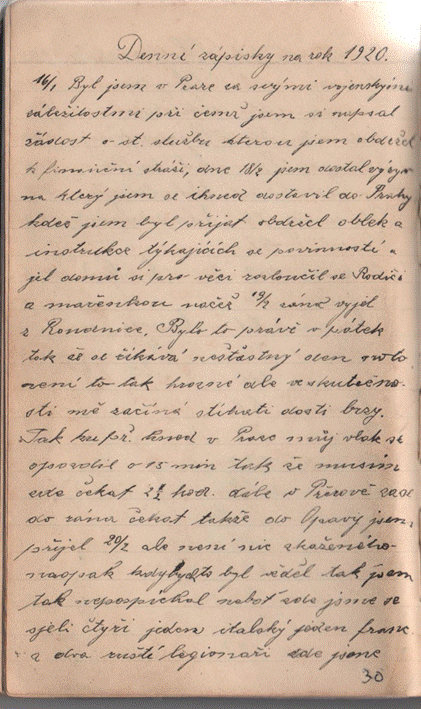 Denní zápisky na rok 1920.
16/1 Byl jsem v Praze za svými vojenskými
záležitostmi při čemž jsem si napsal
žádost o st. službu kterou jsem obdržel
k finanční stráži, dne 18/2 jsem dostal výzvu
na který jsem se ihned dostavil do Prahy
kdež jsem byl přijat obdržel oblek a
instrukce týkajících se povinností a
jel domů si pro věci rozloučil se Rodiči
a mařenkou načež 19/2 ráno vyjel
z Roudnice, Bylo to právě v pátek
tak že se říkává nešťastný den no to
není to tak hrozné ale ve skutečno-
sti mě začíná stíhati dosti brzy.
Tak ku př. hned v Praze můj vlak se
opozdil o 15 min tak že musím
zde čekat 2½ hod. dále v Přerově zase
do rána čekat takže do Opavy jsem
přijel 20/2 ale není nic zkaženého
naopak kdybych to byl věděl tak jsem
tak nepospíchal neboť zde jsme se
sjeli čtyři jeden italský jeden franc.
a dva ruští legionaři zde jsme
30